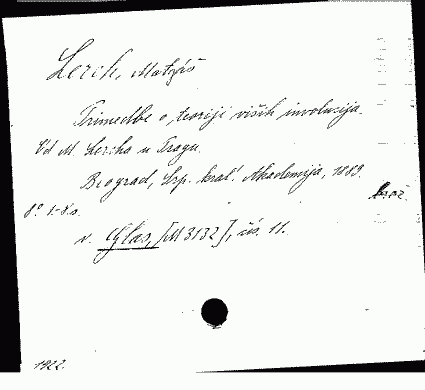 Lerch, Matyáš
Primedbe o teoriji viših involucija.
Od M. Lercha u Pragu.
Beograd, Srp. kral. Akademija, 1889.
broš.
8° 1-8 s.
v. Glas, [M 3132], čís. 11.
1922.